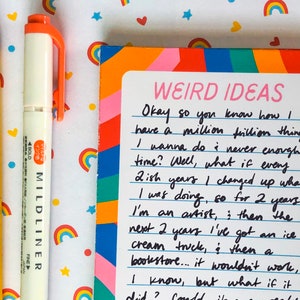 WEIRD IDEAS
Okay so you know how I
have a million trillion things
I wanna do & never enough
time? Well, what if every
2ish years I changed up wha
I was doing, so for 2 years
I'm an artist, & then the
next 2 years I've got an ice
cream truck, & then a
bookstore... it wouldn't work,
I know, but what if it
did?
MILDLINER